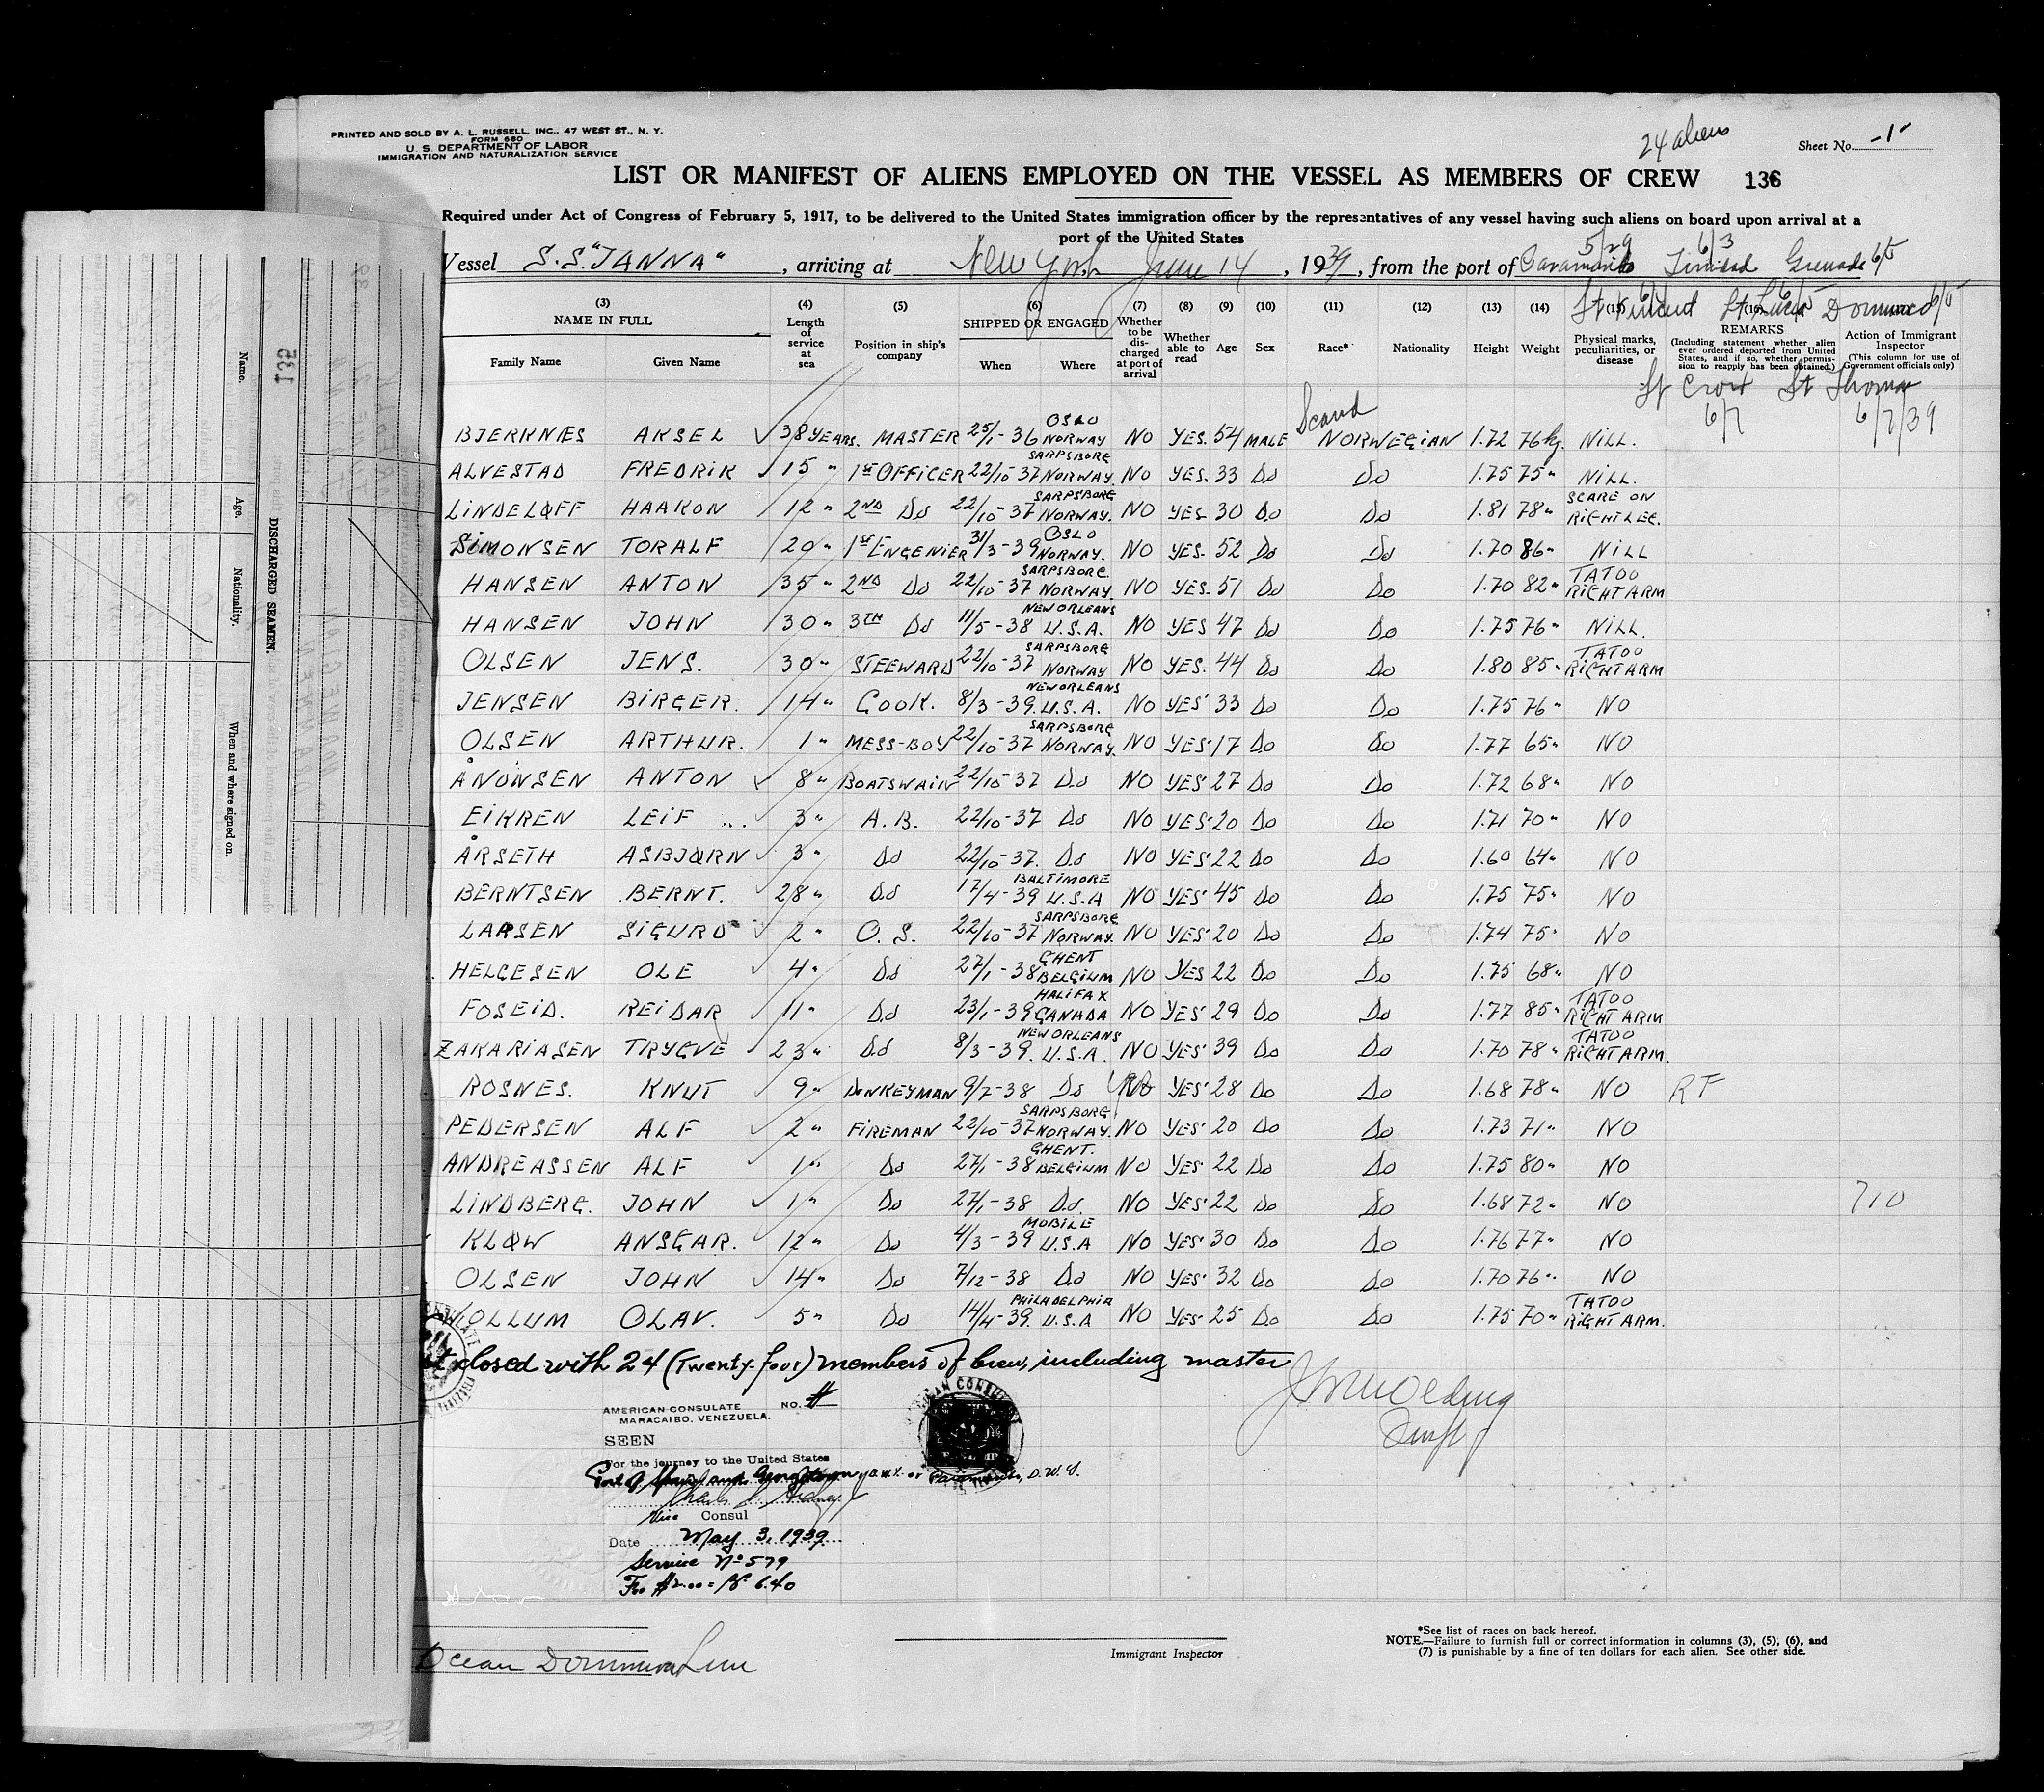 PRINTED AND SOLD BY A. L. RUSSELL, INC., 47 WEST ST., N. Y.
FORM 680
U. S. DEPARTMENT OF LABOR
IMMIGRATION AND NATURALIZATION SERVICE
24 aliens
Sheet No. -1-
LIST OR MANIFEST OF ALIENS EMPLOYED ON THE VESSEL AS MEMBERS OF CREW 136
Required under Act of Congress of February 5, 1917, to be delivered to the United States immigration officer by the representatives of any vessel having such aliens on board upon arrival at a
port of the United States
5/29 6/3
Vessel S.S. "JANNA" , arriving at New York June 14 , 1939 , from the port of Paramaribo Trinidad Grenada 6/5
St Vincent St Lucia Dominica 6/5
St Croix St Thomas
6/7 6/7/39
(3) (4) (5) (6) (7) (8) (9) (10) (11) (12) (13) (14) (15) (16)
NAME IN FULL
Family Name Given Name
Length of service at sea
Position in ship's company
SHIPPED OR ENGAGED
When Where
Whether to be discharged at port of arrival
Whether able to read
Age
Sex
Race*
Nationality
Height
Weight
Physical marks, peculiarities, or disease
REMARKS
(Including statement whether alien ever ordered deported from United States, and if so, whether permission to reapply has been obtained.)
Action of Immigrant Inspector
(This column for use of Government officials only)
Scand
BJERKNÆS AKSEL 38 YEARS. MASTER 25/1-36 OSLO NORWAY NO YES. 54 MALE NORWEGIAN 1.72 76 kg. NILL.
ALVESTAD FREDRIK 15 " 1st OFFICER 22/10-37 SARPSBORG NORWAY. NO YES. 33 Do Do 1.75 75 " NILL.
LINDELØFF HAAKON 12 " 2ND Do 22/10-37 SARPSBORG NORWAY. NO YES. 30 Do Do 1.81 78 " SCARE ON RIGHT LEG.
SIMONSEN TORALF 20 " 1st ENGENIER 31/3-39 OSLO NORWAY. NO YES. 52 Do Do 1.70 86 " NILL
HANSEN ANTON 35 " 2ND Do 22/10-37 SARPSBORG. NORWAY. NO YES. 51 Do Do 1.70 82 " TATOO RIGHT ARM
HANSEN JOHN 30 " 3TH Do 11/5-38 NEW ORLEANS U.S.A. NO YES 47 Do Do 1.75 76 " NILL.
OLSEN JENS. 30 " STEEWARD 22/10-37 SARPSBORG NORWAY NO YES. 44 Do Do 1.80 85 " TATOO RIGHT ARM
JENSEN BIRGER. 14 " COOK. 8/3-39. NEW ORLEANS U.S.A. NO YES 33 Do Do 1.75 76 " NO
OLSEN ARTHUR. 1 " MESS-BOY 22/10-37 SARPSBORG NORWAY. NO YES 17 Do Do 1.77 65 " NO
ÅNONSEN ANTON 8 " BOATSWAIN 22/10-37 Do NO YES 27 Do Do 1.72 68 " NO
EIKREN LEIF 3 " A.B. 22/10-37 Do NO YES 20 Do Do 1.71 70 " NO
ÅRSETH ASBJØRN 3 " Do 22/10-37. Do NO YES 22 Do Do 1.60 64 " NO
BERNTSEN BERNT. 28 " Do 17/4-39 BALTIMORE U.S.A NO YES 45 Do Do 1.75 75 " NO
LARSEN SIGURD 2 " O.S. 22/10-37 SARPSBORG NORWAY. NO YES 20 Do Do 1.74 75 " NO
HELGESEN OLE 4 " Do 27/1-38 GHENT BELGIUM NO YES 22 Do Do 1.75 68 " NO
FOSEID. REIDAR 11 " Do 23/1-39 HALIFAX CANADA NO YES 29 Do Do 1.77 85 " TATOO RIGHT ARM
ZAKARIASEN TRYGVE 23 " Do 8/3-39. NEW ORLEANS U.S.A. NO YES 39 Do Do 1.70 78 " TATOO RIGHT ARM.
ROSNES. KNUT 9 " DONKEYMAN 9/7-38 Do YES 28 Do Do 1.68 78 " NO RF
PEDERSEN ALF 2 " FIREMAN 22/10-37 SARPSBORG NORWAY. NO YES 20 Do Do 1.73 71 " NO
ANDREASSEN ALF 1 " Do 27/1-38 GHENT. BELGIUM NO YES 22 Do Do 1.75 80 " NO
LINDBERG. JOHN 1 " Do 27/1-38 Do. NO YES 22 Do Do 1.68 72 " NO 710
KLØW ANSGAR. 12 " Do 4/3-39 MOBILE U.S.A NO YES 30 Do Do 1.76 77 " NO
OLSEN JOHN 14 " Do 7/12-38 Do NO YES 32 Do Do 1.70 76 " NO
WOLLUM OLAV. 5 " Do 14/4-39. PHILADELPHIA U.S.A NO YES 25 Do Do 1.75 70 " TATOO RIGHT ARM.
closed with 24 (Twenty-four) members of crew, including master
AMERICAN CONSULATE NO.
MARACAIBO, VENEZUELA.
SEEN
For the journey to the United States
Vice Consul
Date May 3, 1939
Service No 579
Fee $2.00 = 6.40
Ocean Dominion Line
Immigrant Inspector
*See list of races on back hereof.
NOTE.—Failure to furnish full or correct information in columns (3), (5), (6), and
(7) is punishable by a fine of ten dollars for each alien. See other side.
135
DISCHARGED SEAMEN.
Name.
Age.
Nationality.
When and where signed on.